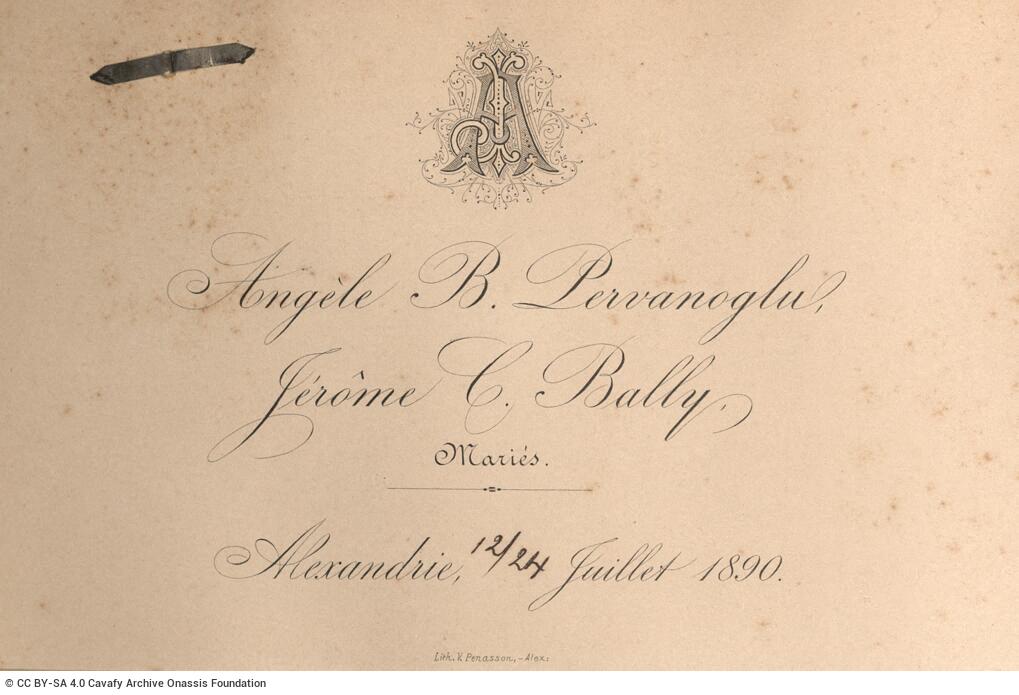 JA
Angèle B. Pervanoglu,
Jérôme C. Bally,
Mariés.
Alexandrie, 12/24 Juillet 1890.
Lith. V. Penasson, - Alex:
© CC BY-SA 4.0 Cavafy Archive Onassis Foundation